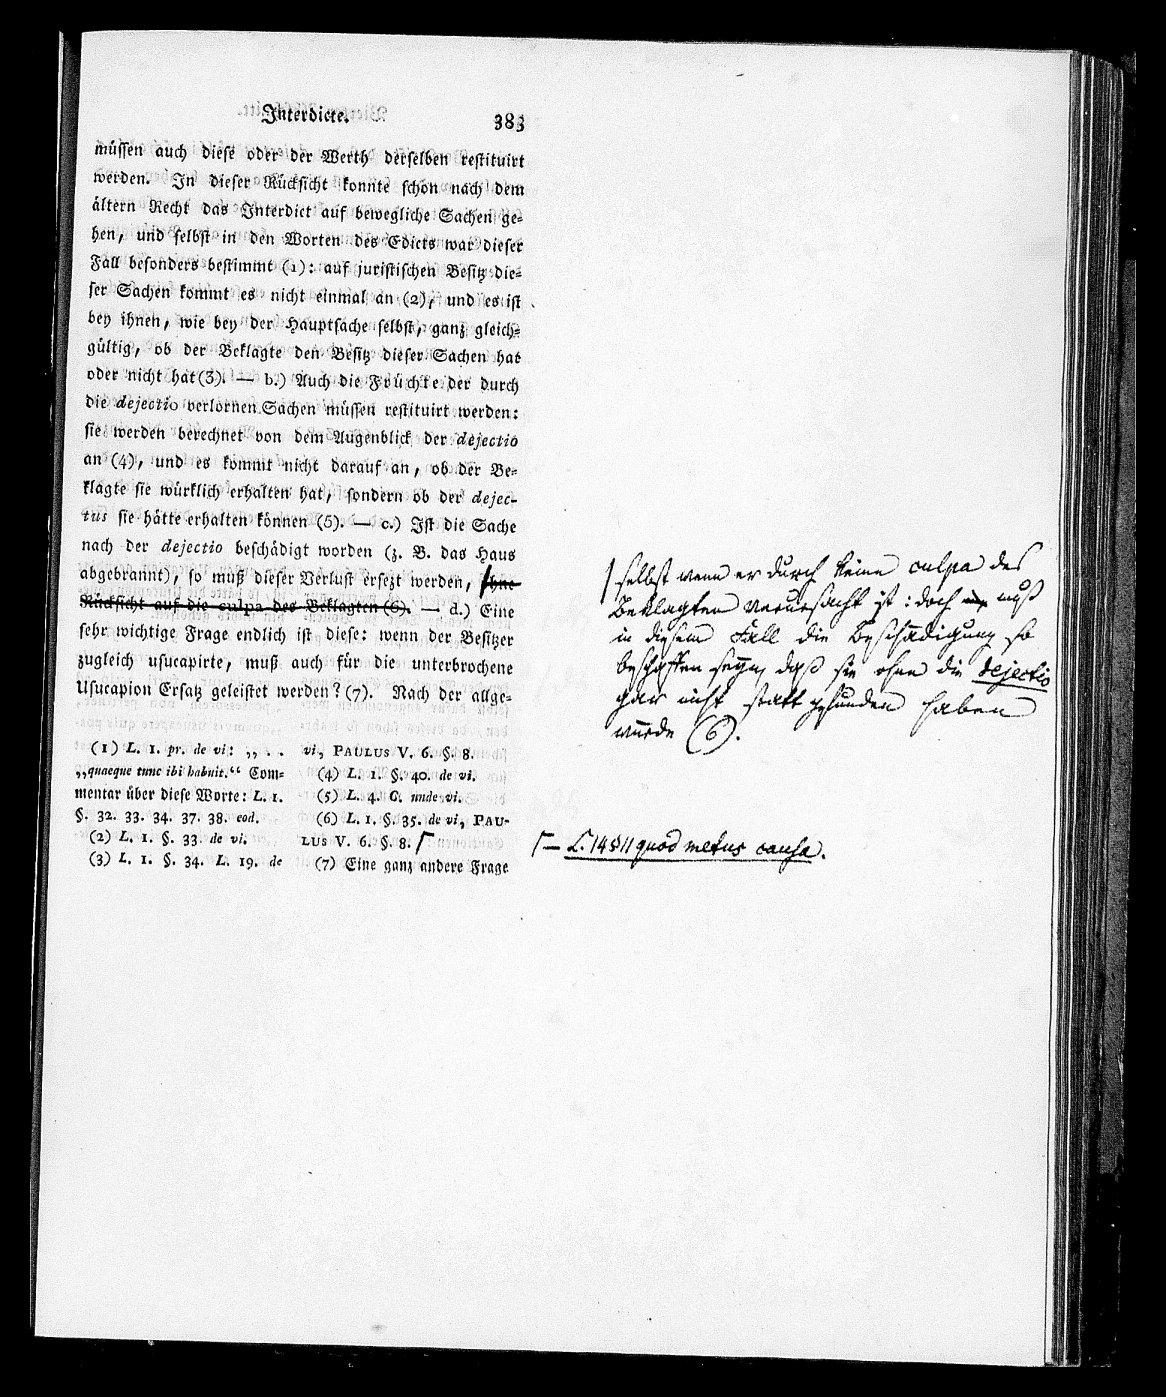 Interdicte. 383
müssen auch diese oder der Werth derselben restituirt
werden. In dieser Rücksicht konnte schon nach dem
ältern Recht das Interdict auf bewegliche Sachen ge-
hen, und selbst in den Worten des Edicts war dieser
Fall besonders bestimmt (1): auf juristischen Besitz die-
ser Sachen kommt es nicht einmal an (2), und es ist
bey ihnen, wie bey der Hauptsache selbst, ganz gleich-
gültig, ob der Beklagte den Besitz dieser Sachen hat
oder nicht hat (3). — b.) Auch die Früchte der durch
die dejectio verlornen Sachen müssen restituirt werden:
sie werden berechnet von dem Augenblick der dejectio
an (4), und es kommt nicht darauf an, ob der Be-
klagte sie würklich erhalten hat, sondern ob der dejec-
tus sie hätte erhalten können (5). — c.) Ist die Sache
nach der dejectio beschädigt worden (z. B. das Haus
abgebrannt), so muß dieser Verlust ersezt werden, ohne
Rücksicht auf die culpa des Beklagten (6). — d.) Eine
sehr wichtige Frage endlich ist diese: wenn der Besitzer
zugleich usucapirte, muß auch für die unterbrochene
Usucapion Ersatz geleistet werden? (7). Nach der allge-
(1) L. 1. pr. de vi: „ . .
„quaeque tunc ibi habuit.“ Com-
mentar über diese Worte: L. 1.
§. 32. 33. 34. 37. 38. eod.
(2) L. 1. §. 33. de vi.
(3) L. 1. §. 34. L. 19. de
vi, PAULUS V. 6. §. 8.
(4) L. 1. §. 40. de vi.
(5) L. 4. C. unde vi.
(6) L. 1. §. 35. de vi, PAU-
LUS V. 6. §. 8.
(7) Eine ganz andere Frage
selbst wenn er durch keine culpa des
Beklagten verursacht ist: doch muß
in diesem Fall die Beschädigung so
beschaffen seyn, daß sie ohne die dejectio
gar nicht statt gefunden haben
würde (6).
— L. 14 § 11 quod metus causa.